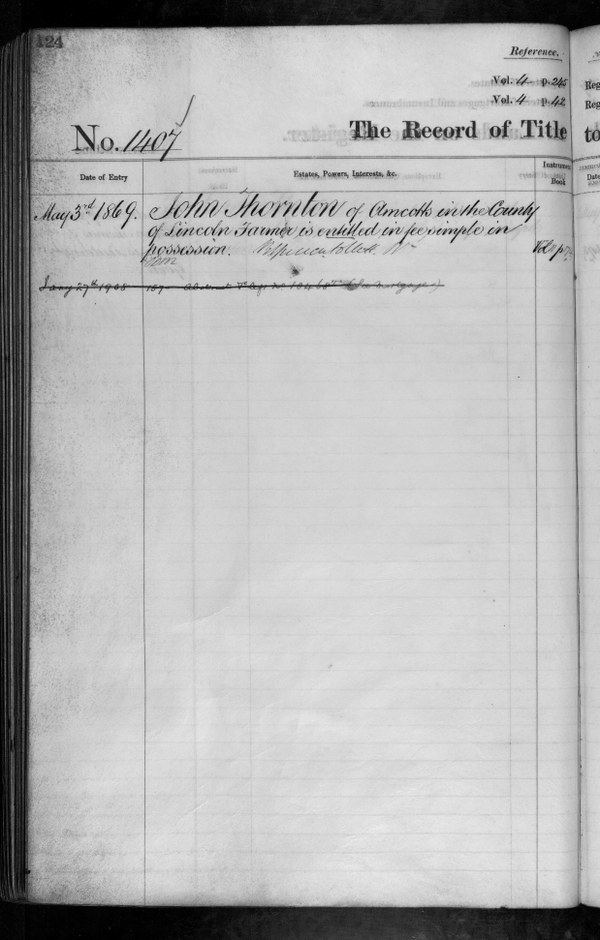 124
Reference.
Vol. 4 p. 245
Vol. 4 p. 42
No. 1407
The Record of Title
to
Reg
Reg
Date of Entry
Estates, Powers, Interests, &c.
Instrument
Book
Date
May 3rd 1869. John Thornton of Amcotts in the County
of Lincoln Farmer is entitled in fee simple in
possession.
Vol p
Jany 27th 1905